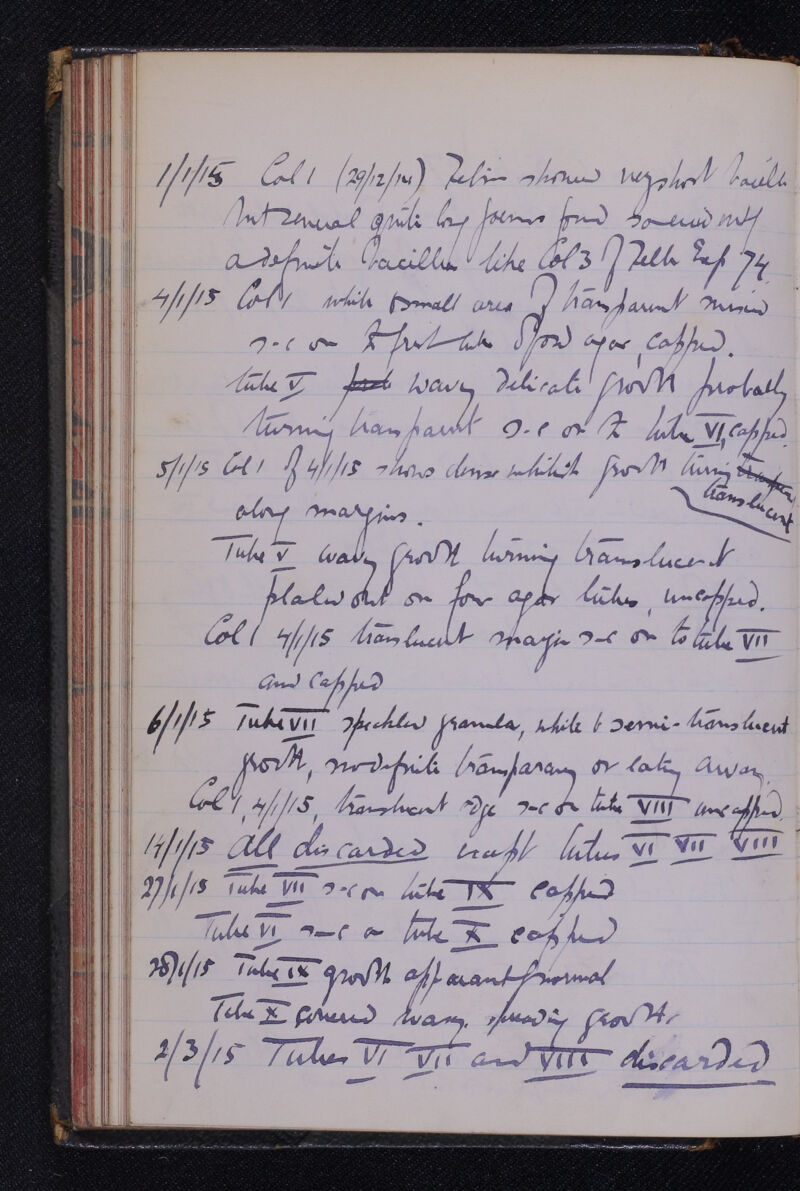 1/1/15 Col 1 (29/12/14) Films showed very short bacilli
but several quite long forms found so evidently
a definite bacillus like Col 3 of Exp 74
4/1/15 Col 1 white & small area of transparent mixed
s-c on to fresh tube of agar, capped.
tube V wavy delicate growth probably
turning transparent s-c on to tube VI, capped.
5/1/15 Col 1 of 4/1/15 shows dense whitish growth turning
translucent
along margins.
Tube V wavy growth turning translucent
plated out on four agar tubes, uncapped.
Col 1 4/1/15 translucent margin s-c on to tube VII
and capped
6/1/15 Tube VII speckled granular, white & semi-translucent
growth, no definite transparency or eating away.
Col 1, 4/1/15, translucent edge s-c on tube VIII uncapped.
14/1/15 All discarded except tubes VI VII VIII
27/1/15 Tube VII s-c on tube IX capped
Tube VI s-c on tube X capped
28/1/15 Tube IX growth apparently normal
Tube X covered wavy spreading growth.
2/3/15 Tubes VI VII and VIII discarded